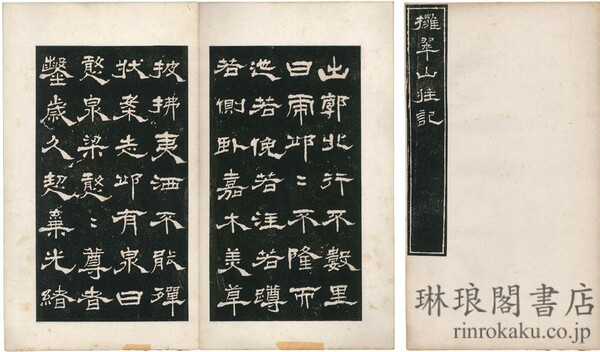 擁翠山莊記
出郭北行不數里
曰虎邱〻不隆而
池若俛若注若蹲
若側卧嘉木美草
披拂夷洒不能殫
狀案志邱有泉曰
憨泉梁憨〻尊者
鑿歲久棄光緒
琳琅閣書店
rinrokaku.co.jp